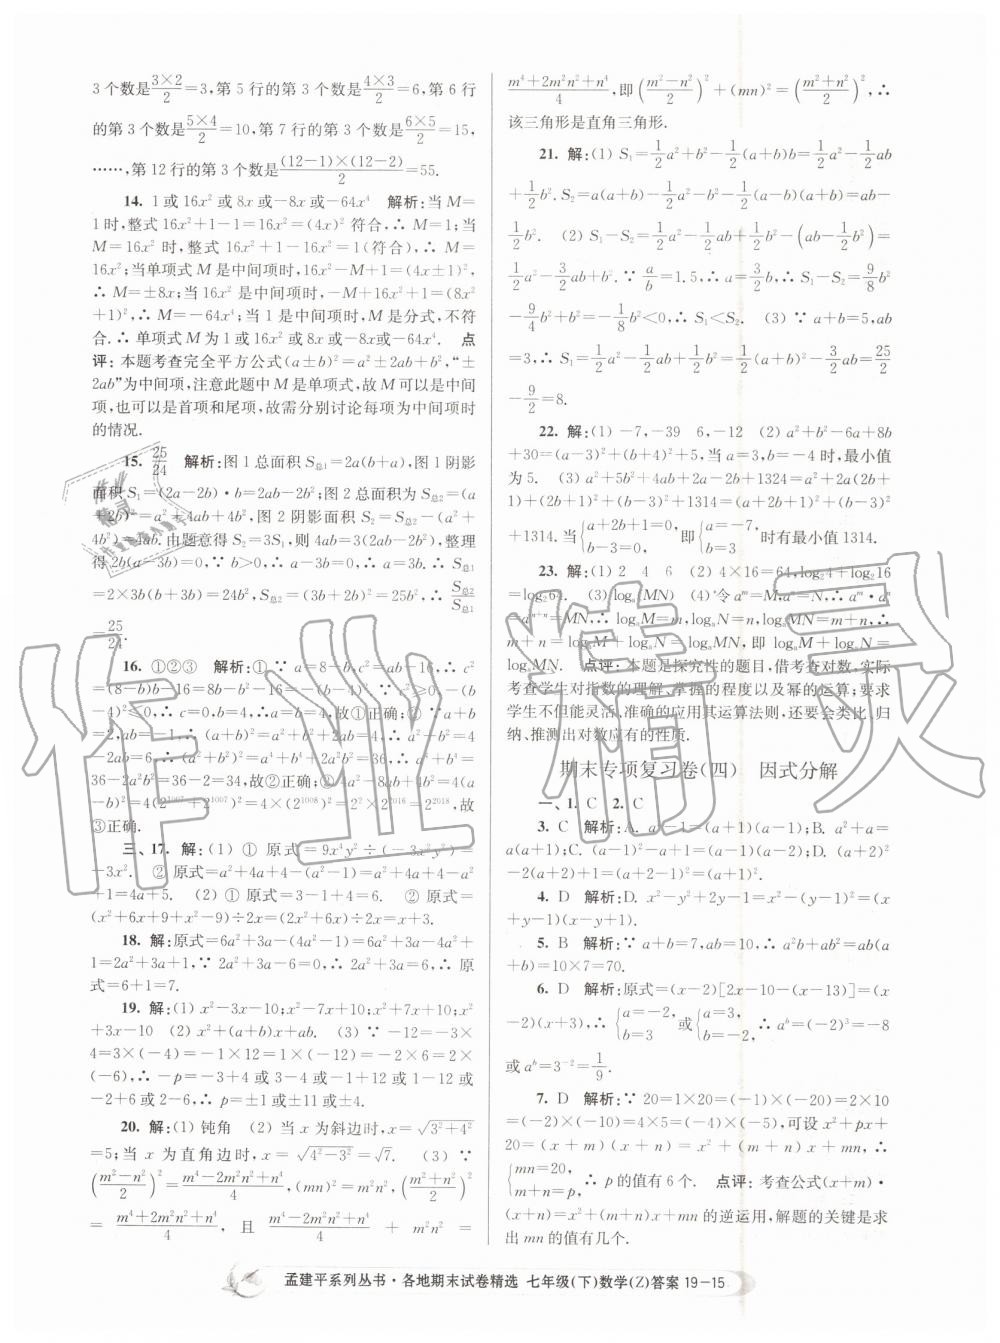 3 个数是3×2/2=3,第 5 行的第 3 个数是4×3/2=6,第 6 行
的第 3 个数是5×4/2=10,第 7 行的第 3 个数是6×5/2=15,
……,第 12 行的第 3 个数是(12-1)×(12-2)/2=55.
14. 1 或 16x² 或 8x 或-8x 或-64x⁴ 解析:当 M=
1 时,整式 16x²+1-1=16x²=(4x)² 符合,∴ M=1;当
M=16x² 时,整式 16x²+1-16x²=1(符合),∴ M=
16x²;当单项式 M 是中间项时,16x²-M+1=(4x±1)²,
∴ M=±8x;当 16x² 是中间项时,-M+16x²+1=(8x²
+1)²,∴ M=-64x⁴;当 1 是中间项时,M 是分式,不符
合.∴ 单项式 M 为 1 或 16x² 或 8x 或-8x 或-64x⁴. 点
评:本题考查完全平方公式(a±b)²=a²±2ab+b²,“±
2ab”为中间项,注意此题中 M 是单项式,故 M 可以是中间
项,也可以是首项和尾项,故需分别讨论每项为中间项时
的情况.
15. 25/24 解析:图 1 总面积 S总1=2a(b+a),图 1 阴影
面积 S₁=(2a-2b)·b=2ab-2b²;图 2 总面积为 S总2=(a
+2b)²=a²+4ab+4b²,图 2 阴影面积 S₂=S总2-(a²+
4b²)=4ab.由题意得 S₂=3S₁,则 4ab=3(2ab-2b²),整理
得 2b(a-3b)=0,∵ b>0,∴ a-3b=0,∴ a=3b.∴ S总1
=2×3b(b+3b)=24b²,S总2=(3b+2b)²=25b²,∴ S总2/S总1
=25/24.
16. ①②③ 解析:①,∵ a=8-b,c²=ab-16,∴ c²
=(8-b)b-16=8b-b²-16=-(b-4)². ∵ c²≥0,-(b
-4)²≤0,∴ c=0,b=4,∴ a=b=4,故①正确;② ∵ a+b
=2,ab=-1,∴ (a+b)²=a²+b²+2ab=4,∴ a²+b²=4
-2ab=6,∴ (a²+b²)²=a⁴+b⁴+2a²b²=36,∴ a⁴+b⁴=
36-2a²b²=36-2=34,故②正确;③ 4a²-8ab+4b²=4(a
-b)²=4(2¹⁰⁰⁷+2¹⁰⁰⁷)²=4×(2¹⁰⁰⁸)²=2²×2²⁰¹⁶=2²⁰¹⁸,故
③正确.
三、17. 解:(1) ① 原式=9x⁴y²÷(-3x²y²)=
-3x². ② 原式=a²+4a+4-(a²-1)=a²+4a+4-a²
+1=4a+5. (2) ① 原式=3-1+4=6. ② 原式=
(x²+6x+9+x²-9)÷2x=(2x²+6x)÷2x=x+3.
18. 解:原式=6a²+3a-(4a²-1)=6a²+3a-4a²+
1=2a²+3a+1,∵ 2a²+3a-6=0,∴ 2a²+3a=6,∴ 原
式=6+1=7.
19. 解:(1) x²-3x-10;x²-7x+10;x²+7x+10;x²+
3x-10 (2) x²+(a+b)x+ab. (3) ∵ -12=-3×
4=3×(-4)=-1×12=1×(-12)=-2×6=2×
(-6),∴ -p=-3+4 或 3-4 或-1+12 或 1-12 或
-2+6 或 2-6,∴ p=±1 或±11 或±4.
20. 解:(1) 钝角 (2) 当 x 为斜边时,x=√(3²+4²)
=5;当 x 为直角边时,x=√(4²-3²)=√7. (3) ∵
((m²-n²)/2)²=(m⁴-2m²n²+n⁴)/4,(mn)²=m²n²,((m²+n²)/2)²
=(m⁴+2m²n²+n⁴)/4, 且 (m⁴-2m²n²+n⁴)/4 + m²n² =
(m⁴+2m²n²+n⁴)/4,即((m²-n²)/2)²+(mn)²=((m²+n²)/2)²,∴
该三角形是直角三角形.
21. 解:(1) S₁=1/2a²+b²-1/2(a+b)b=1/2a²-1/2ab
+1/2b².S₂=a(a+b)-1/2a²-b²-1/2(a-b)(a+b)=ab-
1/2b². (2) S₁-S₂=1/2a²-1/2ab+1/2b²-(ab-1/2b²)=
1/2a²-3/2ab+b². ∵ a/b=1.5,∴ a=3/2b,∴ S₁-S₂=9/8b²
-9/4b²+b²=-1/8b²<0,∴ S₁<S₂. (3) ∵ a+b=5,ab
=3,∴ S₁=1/2a²-1/2ab+1/2b²=1/2(a+b)²-3/2ab=25/2
-9/2=8.
22. 解:(1) -7,-39 6,-12 (2) a²+b²-6a+8b
+30=(a-3)²+(b+4)²+5,当 a=3,b=-4 时,最小值
为 5. (3) a²+5b²+4ab-2a-2b+1324=a²+2a(2b+
1)+(2b+1)²+(b-3)²+1314=(a+2b+1)²+(b-3)²
+1314. 当{a+2b+1=0, b-3=0, 即{a=-7, b=3 时有最小值 1314.
23. 解:(1) 2 4 6 (2) 4×16=64,log₂4+log₂16
=log₂64. (3) logₐ(MN) (4) 令 aᵐ=M,aⁿ=N,∴ aᵐ·aⁿ
=aᵐ⁺ⁿ=MN,∴ logₐM=m,logₐN=n,logₐMN=m+n,∴
m+n=logₐM+logₐN=logₐMN,即 logₐM+logₐN=
logₐMN. 点评:本题是探究性的题目,借考查对数,实际
考查学生对指数的理解、掌握的程度以及幂的运算;要求
学生不但能灵活、准确的应用其运算法则,还要会类比、归
纳、推测出对数应有的性质.
期末专项复习卷(四) 因式分解
一、1. C 2. C
3. C 解析:A. a²-1=(a+1)(a-1);B. a²+a=
a(a+1);C. a²+a-2=(a+2)(a-1);D. (a+2)²
-2(a+2)+1=(a+2-1)²=(a+1)².
4. D 解析:D. x²-y²+2y-1=x²-(y-1)²=(x
+y-1)(x-y+1).
5. B 解析:∵ a+b=7,ab=10,∴ a²b+ab²=ab(a
+b)=10×7=70.
6. D 解析:原式=(x-2)[2x-10-(x-13)]=(x
-2)(x+3),∴ {a=-2, b=3 或{a=3, b=-2, ∴ aᵇ=(-2)³=-8
或 aᵇ=3⁻²=1/9.
7. D 解析:∵ 20=1×20=(-1)×(-20)=2×10
=(-2)×(-10)=4×5=(-4)×(-5);可设 x²+px+
20=(x+m)(x+n)=x²+(m+n)x+mn,∴
{mn=20, m+n=p, ∴ p 的值有 6 个. 点评:考查公式(x+m)·
(x+n)=x²+(m+n)x+mn 的逆运用,解题的关键是求
出 mn 的值有几个.
孟建平系列丛书·各地期末试卷精选 七年级(下)数学(Z)答案 19-15
作业精灵